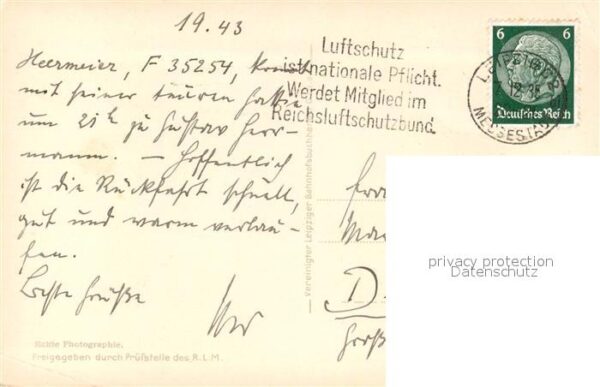 19.43
Heermeier, F 35254,
mit seiner
um 21h zu Gustav Herr-
mann. – Hoffentlich
ist die Rückfahrt schnell,
gut und warm verlau-
fen.
Beste Grüße
Echte Photographie.
Freigegeben durch Prüfstelle des R.L.M.
Vereinigter Leipziger Bahnhofsbuchhandel
Luftschutz
ist nationale Pflicht.
Werdet Mitglied im
Reichsluftschutzbund.
6 6
Deutsches Reich
LEIPZIG
MESSESTADT
D
privacy protection
Datenschutz